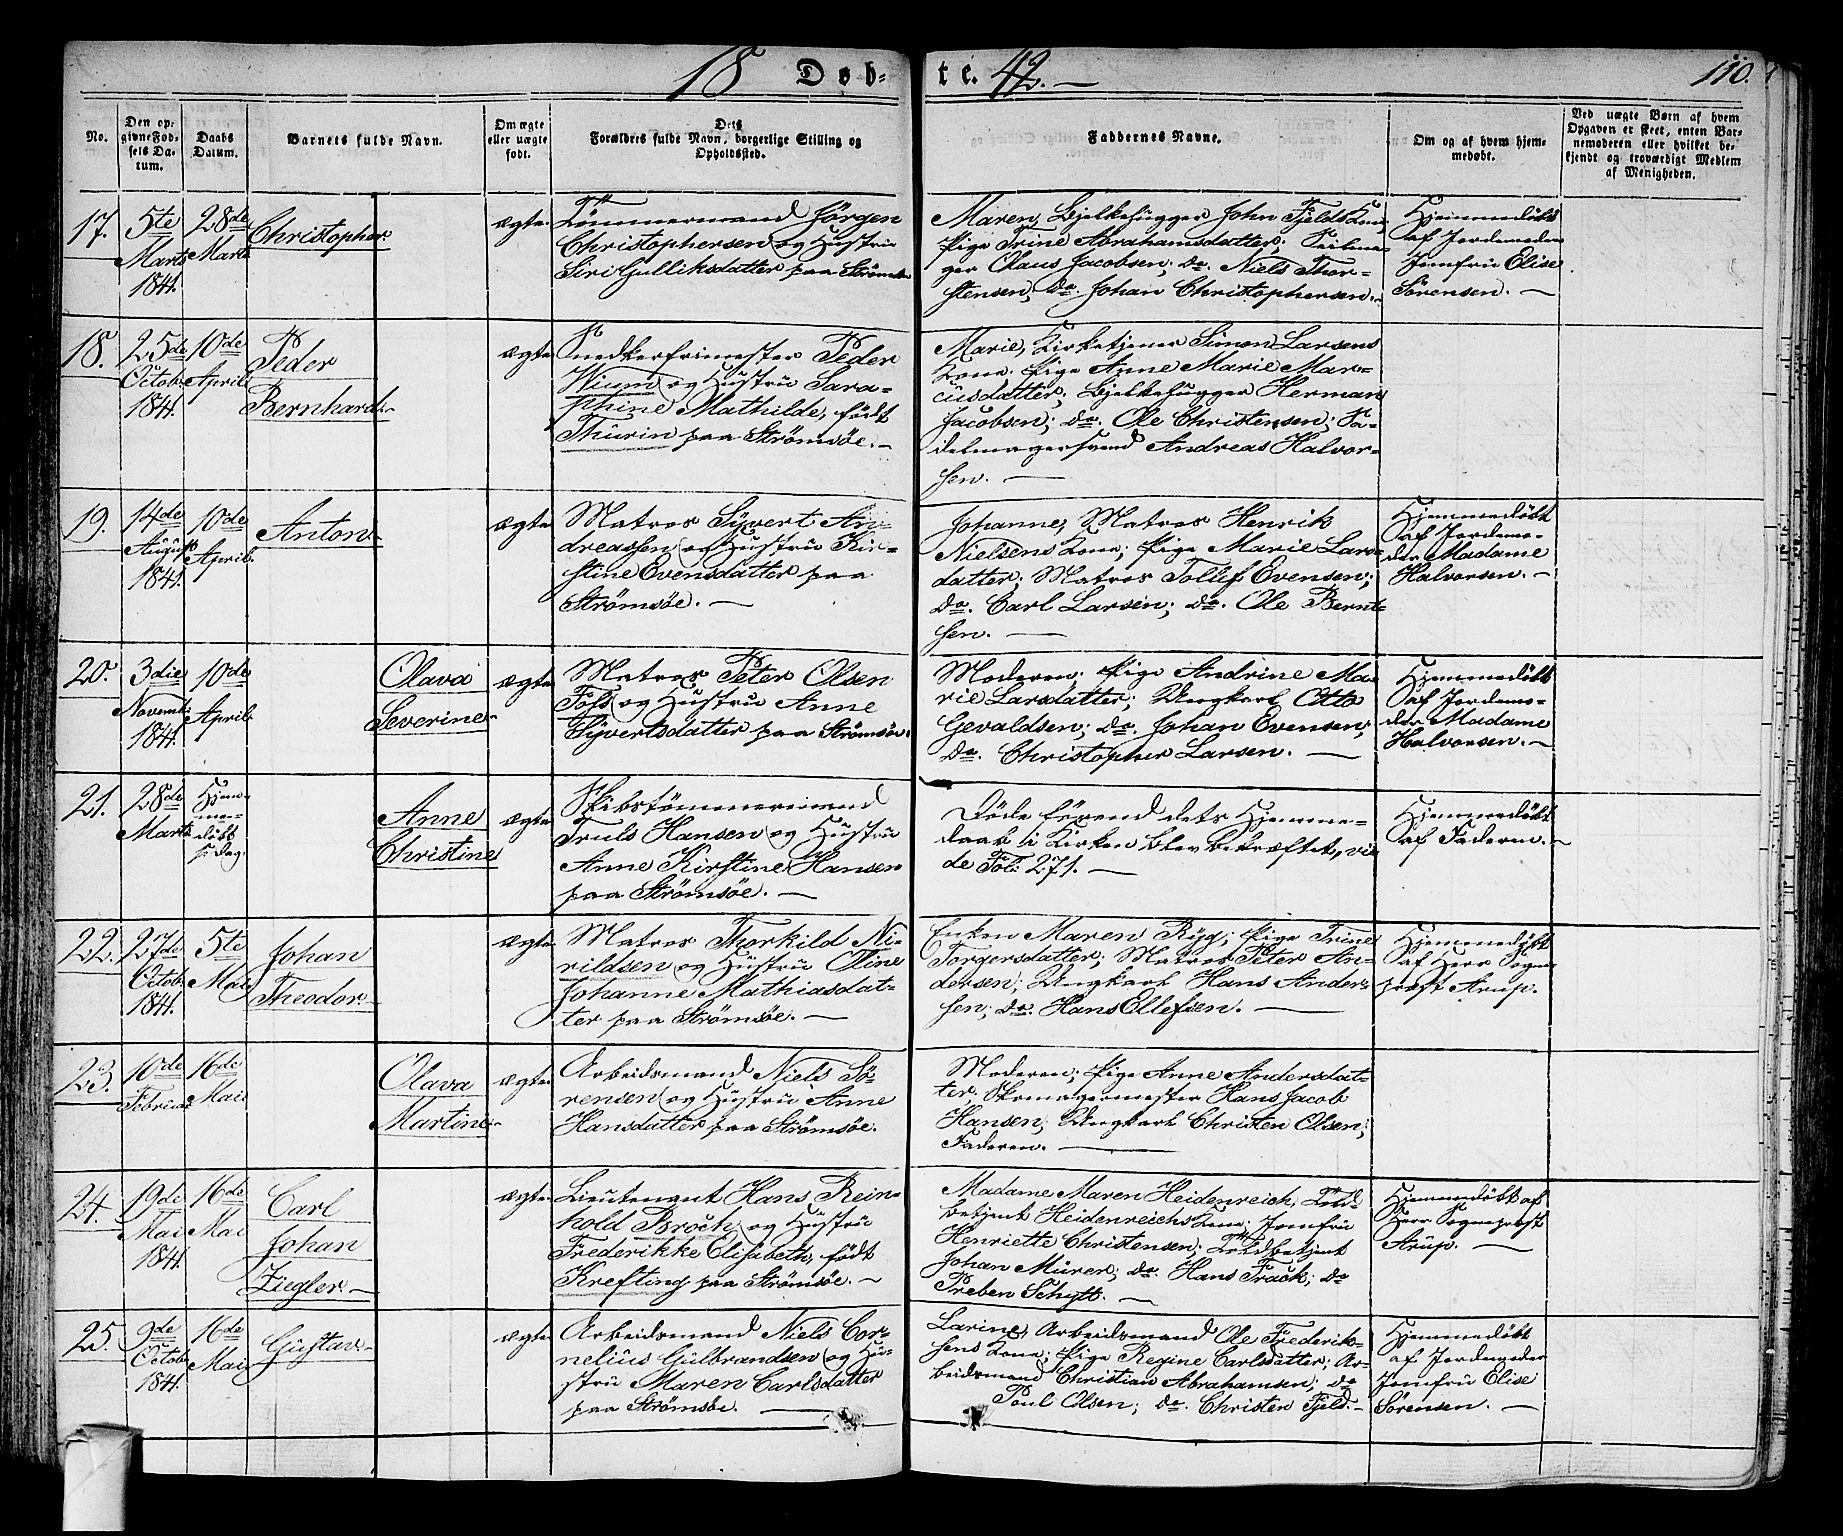 18 Döb-
te. 42.
110.
No.
Den op-
givne Föd-
sels Da-
tum.
Daabs
Datum.
Barnets fulde Navn.
Om ægte
eller uægte
født.
Dets
Forældres fulde Navn, borgerlige Stilling og
Opholdssted.
Faddernes Navne.
Om og af hvem hjem-
medøbt.
Ved uægte Børn af hvem
Opgaven er skeet, enten Bar-
nemoderen eller hvilket be-
kjendt og troværdigt Medlem
af Menigheden.
17.
5te
Marts
1841.
28de
Marts
Christopher
ægte
Tömmermand Jörgen
Christophersen og Hustru
Siri Gulliksdatter paa Strömsöe
Maren, Bjelkehugger John Fjelds Kone,
Pige Trine Abrahamsdatter;
Olaus Jacobsen; do. Niels Thor-
stensen; do. Johan Christophersen.
Hjemmedöbt
af Jordemoder
Jomfru Elise
Sörensen.
18.
25de
Octob.
1841.
10de
April
Peder
Bernhard
ægte
Snedkerfrimester Peder
Wium og Hustru Sara-
phine Mathilde, född
Thurin paa Strömsöe.
Marie, Kirketjener Simon Larsens
Kone; Pige Anne Marie Mar-
cusdatter; Bjelkehugger Herman
Jacobsen; do. Ole Christensen; Sa-
delmagersvend Andreas Halvor-
sen.
19.
14de
August
1841.
10de
April.
Anton
ægte
Matros Syvert An-
dreassen og Hustru Kir-
stine Evensdatter paa
Strömsöe.
Johanne, Matros Henrik
Nielsens Kone; Pige Marie Lars-
datter; Matros Tollef Evensen;
do. Carl Larsen; do. Ole Bernt-
sen.
Hjemmedöbt
af Jordemo-
der Madame
Halvorsen.
20.
3die
Novemb.
1841.
10de
April.
Olava
Severine
ægte
Matros Peter Olsen
Foss og Hustru Anne
Syvertsdatter paa Strömsöe.
Moderen; Pige Andrine Ma-
rie Larsdatter; Ungkarl Otto
Gevaldsen; do. Johan Evensen;
do. Christopher Larsen.
Hjemmedöbt
af Jordemo-
der Madame
Halvorsen.
21.
28de
Marts
Hjem-
me-
döbt
s: Dag.
Anne
Christine
ægte
Skibstömmermand
Truls Hansen og Hustru
Anne Kirstine Hansen
paa Strömsöe.
Döde förend dets Hjemme-
daab i Kirken blev bekræftet, vi-
de Fol: 271.
Hjemmedöbt
af Faderen.
22.
27de
Octob.
1841.
5te
Mai
Johan
Theodor
ægte
Matros Thorkild Ni-
rildsen og Hustru Oline
Johanne Mathiasdat-
ter paa Strömsöe.
Enken Maren Ryg; Pige Trine
Torgersdatter; Matros Peter An-
dersen; Ungkarl Hans Ander-
sen; do. Hans Ellefsen.
Hjemmedöbt
af Herr Sogne-
præst Arup.
23.
10de
Februar
16de
Mai
Olava
Martine
ægte
Arbeidsmand Niels Sö-
rensen og Hustru Anne
Hansdatter paa Strömsöe.
Moderen; Pige Anne Andersdat-
ter; Skomagermester Hans Jacob
Hansen; Ungkarl Christen Olsen;
Faderen.
24.
19de
Mai
1841.
16de
Mai
Carl
Johan
Ziegler
ægte
Lieutenant Hans Rein-
hold Broch og Hustru
Frederikke Elisabeth, född
Krefting paa Strömsöe.
Madame Maren Heidenreich, Told-
betjent Heidenreichs Kone; Jomfru
Henriette Christensen; Toldbetjent
Johan Mürer; do. Hans Frack; do
Preben Schytt.
Hjemmedöbt af
Herr Sognepræst
Arup.
25.
9de
Octob.
1841.
16de
Mai
Gustav
ægte
Arbeidsmand Niels Cor-
nelius Gulbrandsen og Hu-
stru Maren Carlsdatter
paa Strömsöe.
Larine, Arbeidsmand Ole Frederik-
sens Kone; Pige Regine Carlsdatter; Ar-
beidsmand Christian Abrahamsen; do
Poul Olsen; do. Christen Fjeld.
Hjemmedöbt
af Jordemoder
Jomfru Elise
Sörensen.